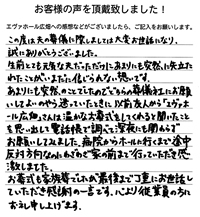 お客様の声を頂戴致しました！
エヴァホール広畑への感想などがございましたら、ご記入をお願いします。
この度は夫の葬儀に際しましては大変お世話になり、
誠にありがとうございました。
生前とても元気な夫だっただけにあまりにも突然に失った
われたことがいまだに信じられない想いです。
あまりにも突然のことでしたのでどちらの葬儀社にお願
いしてよいのやら迷っていたときに以前友人から「エヴァホー
ル広畑」さんは温かなお葬式をしてくれると聞いたこと
を思い出して電話帳で調べて深夜にも関わらず
お願いしてみました。病院からホールに行くまで途中
反対方向なのにわざわざ家の前まで行っていただき感
激しました。
お葬式も家族葬でしたが最後まで丁重にお世話し
ていただき感謝の一言です。心より従業員の方に
お礼申し上げます。